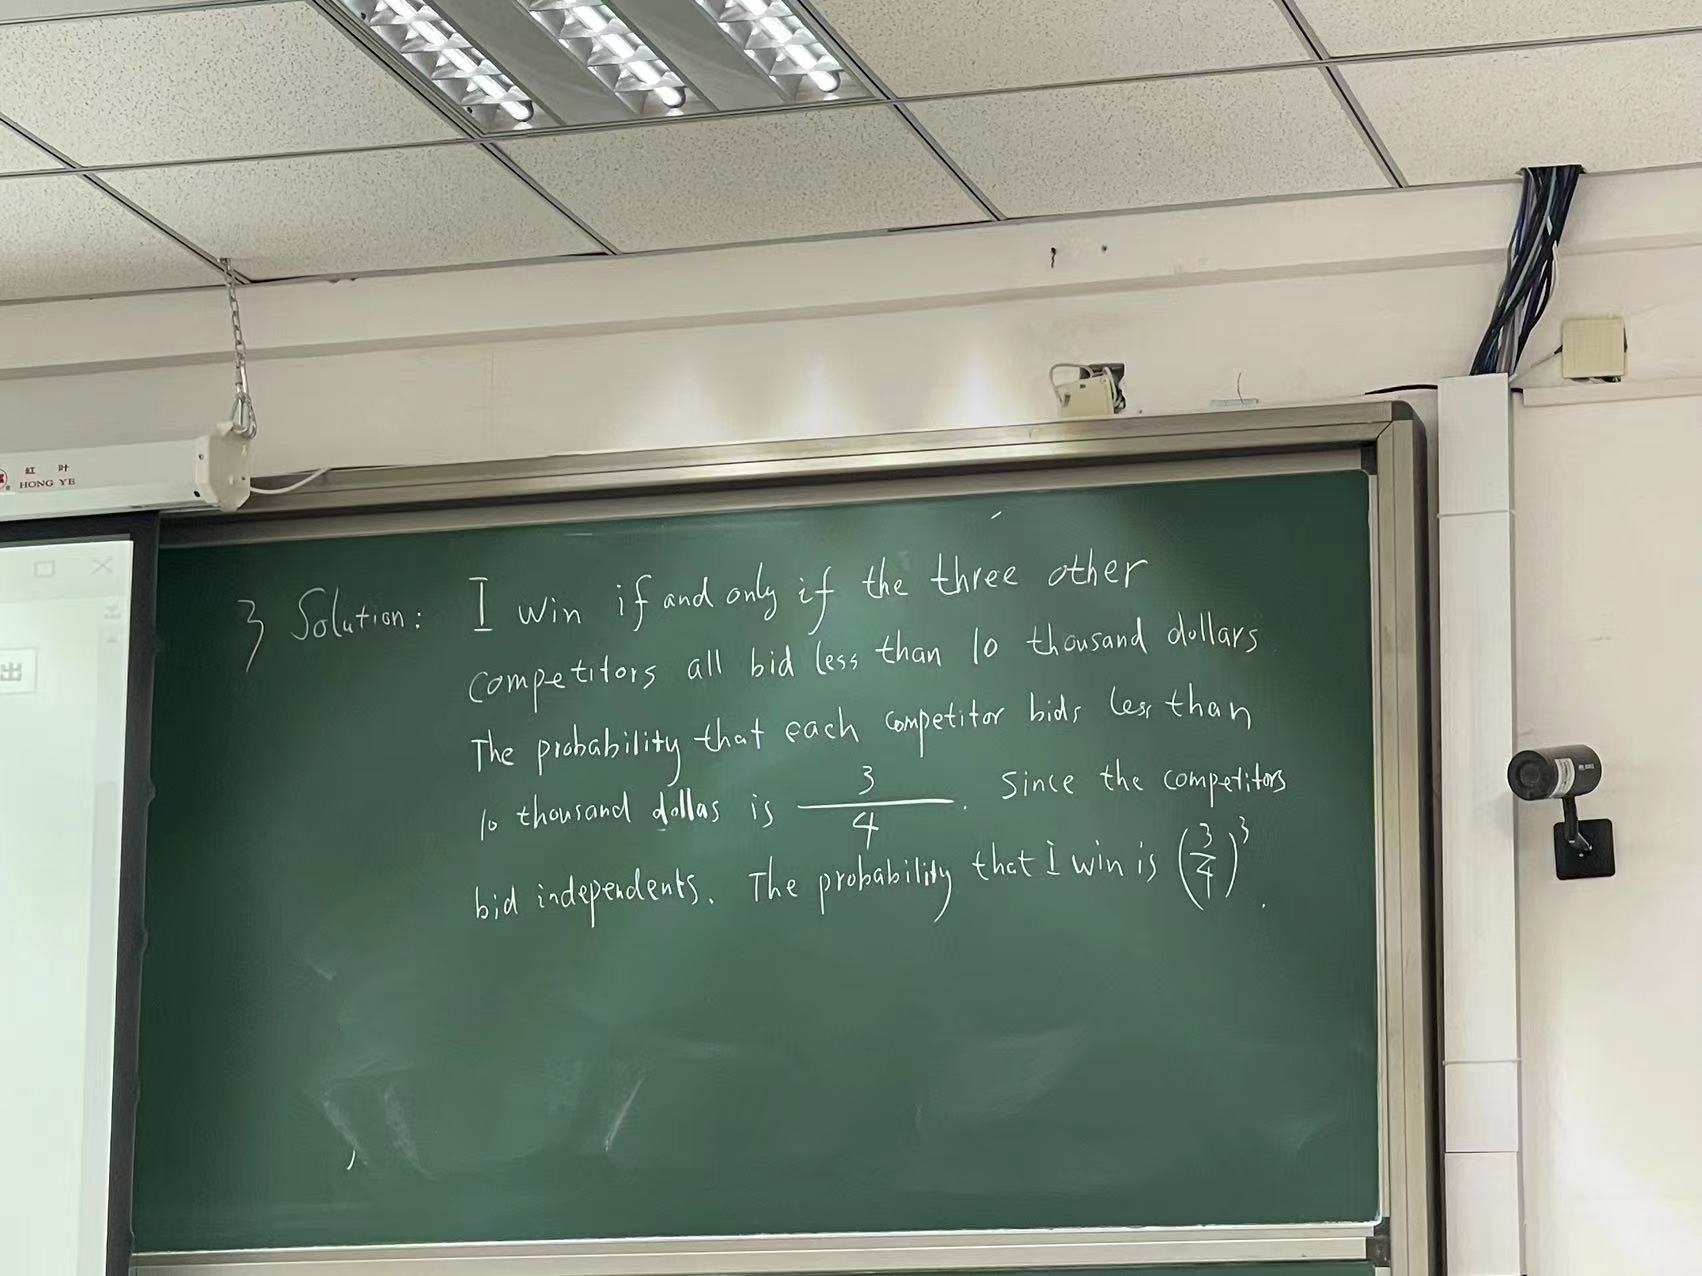 紅 叶
HONG YE
出
3 Solution: I win if and only if the three other
competitors all bid less than 10 thousand dollars
The probability that each competitor bids less than
10 thousand dollas is 3/4. Since the competitors
bid independents. The probability that I win is (3/4)³.